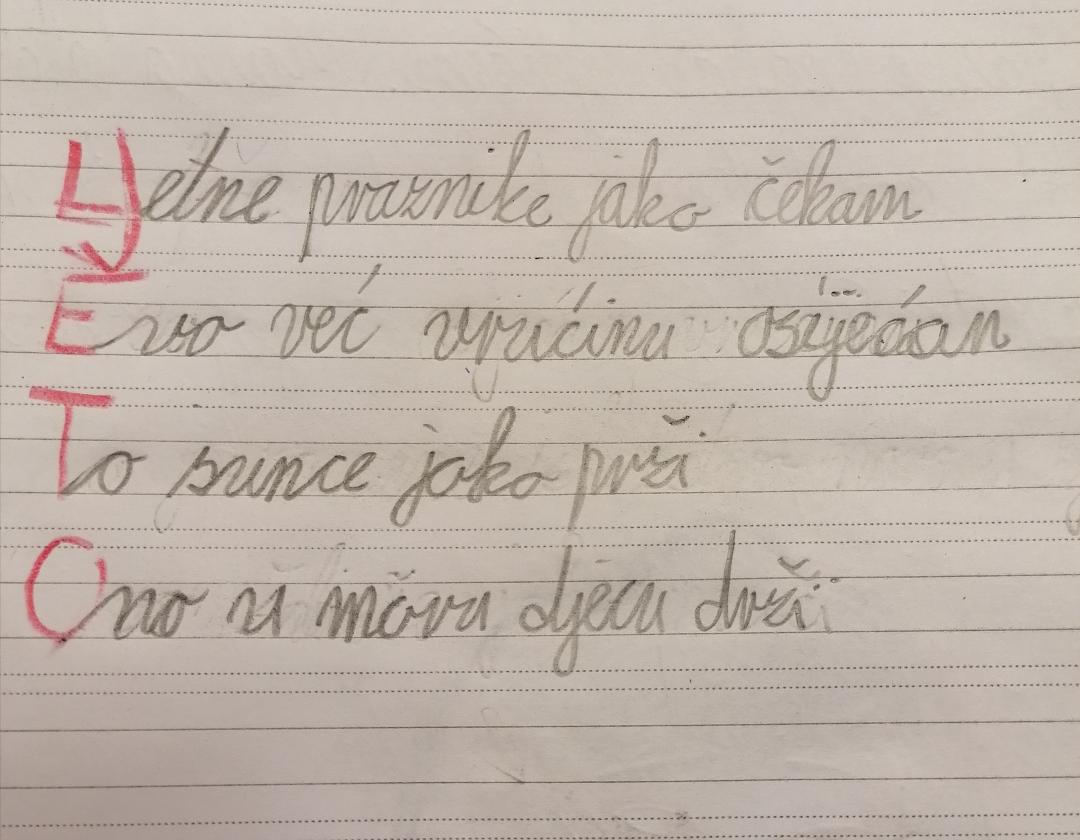 Ljetne praznike jako čekam
Evo već vrućinu osjećam
To sunce jako prži
Ono u moru djecu drži